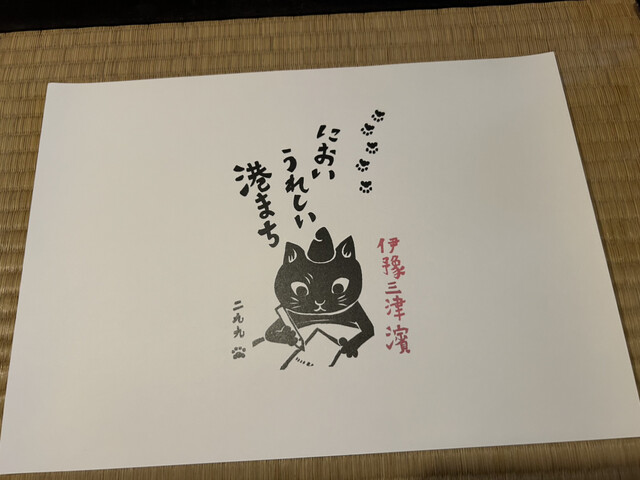 におい
うれしい
港まち
伊豫三津濱
二九九